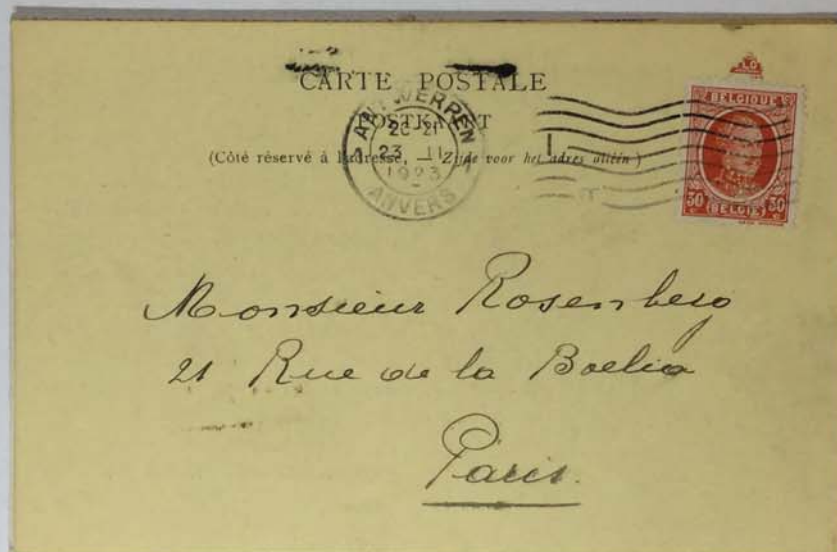 CARTE POSTALE
POSTKAART
(Côté réservé à l'adresse, — Zijde voor het adres alléén)
ANTWERPEN
20-21
23 11
1923
ANVERS
BELGIQUE
30 30
BELGIË
Monsieur Rosenberg
21 Rue de la Boelia
Paris.